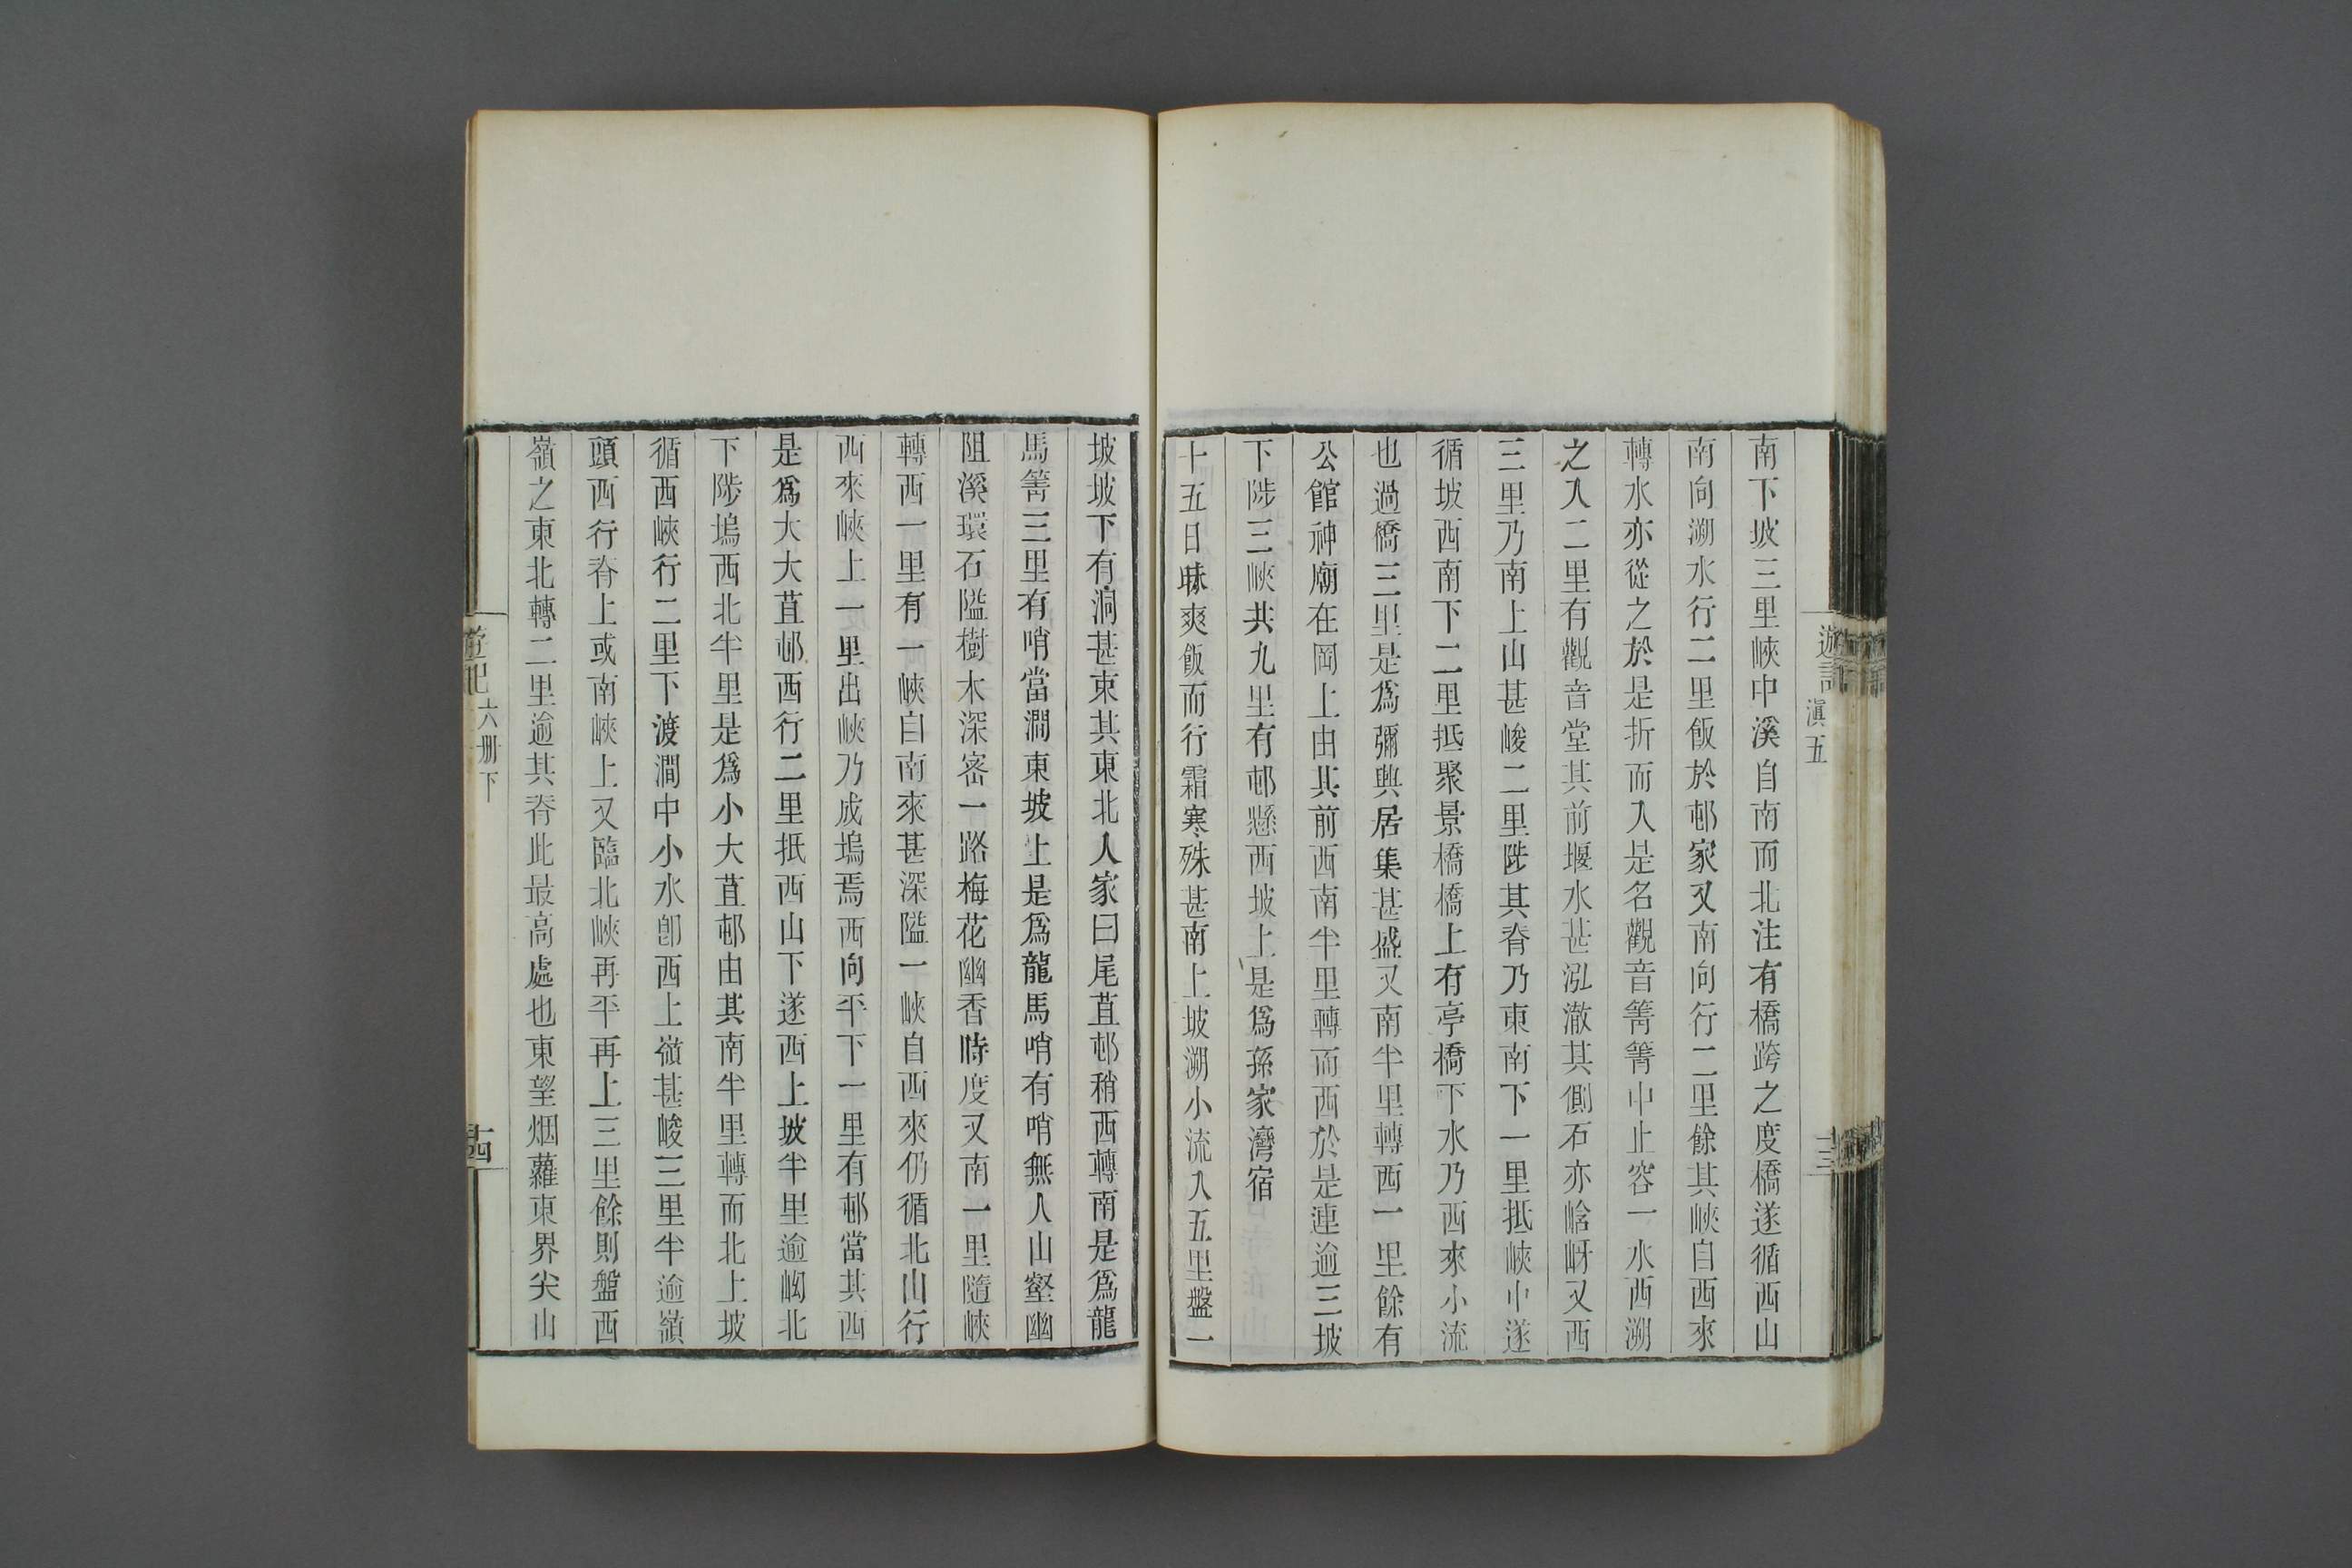 遊記
滇五
十三
南下坡三里峽中溪自南而北注有橋跨之度橋遂循西山
南向溯水行二里飯於邨家又南向行二里餘其峽自西來
轉水亦從之於是折而入是名觀音箐箐中止容一水西溯
之入二里有觀音堂其前堰水甚泓澈其側石亦峆岈又西
三里乃南上山甚峻二里陟其脊乃東南下一里抵峽中遂
循坡西南下二里抵聚景橋橋上有亭橋下水乃西來小流
也過橋三里是爲彌興居集甚盛又南半里轉西一里餘有
公館神廟在岡上由其前西南半里轉而西於是連逾三坡
下陟三峽共九里有邨懸西坡上是爲孫家灣宿
十五日昧爽飯而行霜寒殊甚南上坡溯小流入五里盤一
坡坡下有洞甚東其東北人家曰尾苴邨稍西轉南是爲龍
馬箐三里有哨當澗東坡上是爲龍馬哨有哨無人山壑幽
阻溪環石隘樹木深密一路梅花幽香時度又南一里隨峽
轉西一里有一峽自南來甚深隘一峽自西來仍循北山行
西來峽上一里出峽乃成塢焉西向平下一里有邨當其西
是爲大大苴邨西行二里抵西山下遂西上坡半里逾㘭北
下陟塢西北半里是爲小大苴邨由其南半里轉而北上坡
循西峽行二里下渡澗中小水卽西上嶺甚峻三里半逾嶺
頭西行脊上或南峽上又臨北峽再平再上三里餘則盤西
嶺之東北轉二里逾其脊此最高處也東望烟蘿東界尖山
遊記
六册下
十四